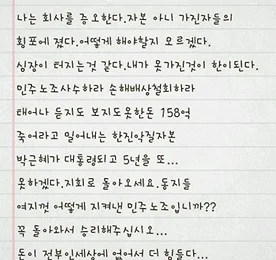 나는 회사를 증오한다.자본 아니 가진자들의
횡포에 졌다.어떻게 해야할지 모르겠다.
심장이 터지는것 같다.내가 못가진것이 한이된다.
민주노조사수하라 손해배상철회하라
태어나 듣지도 보지도못한돈 158억
죽어라고 밀어내는 한진악질자본
박근혜가 대통령되고 5년을 또...
못하겠다.지회로 돌아오세요.동지들
여지껏 어떻게 지켜낸 민주노조입니까??
꼭 돌아와서 승리해주십시오...
돈이 전부인세상에 없어서 더 힘들다...